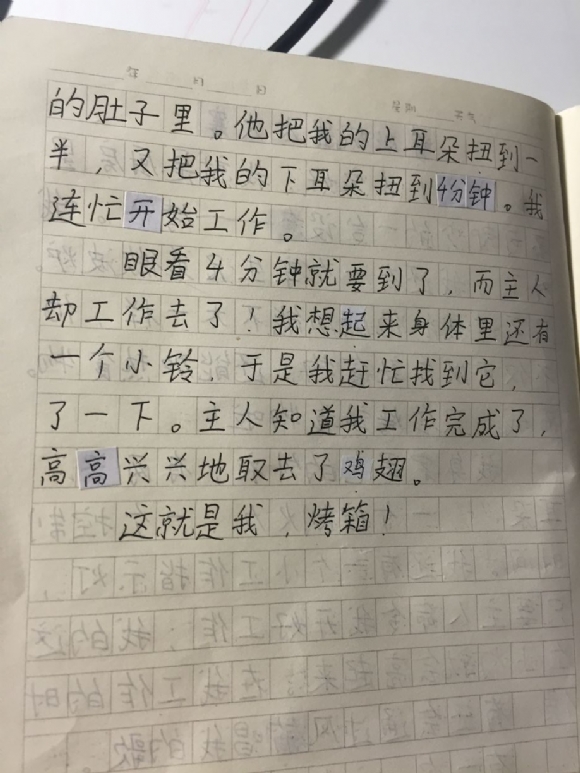 年 日 日 星期 天气
的肚子里。他把我的上耳朵扭到一
半，又把我的下耳朵扭到4分钟。我
连忙开始工作。
眼看4分钟就要到了，而主人
却工作去了！我想起来身体里还有
一个小铃，于是我赶忙找到它，
了一下。主人知道我工作完成了，
高高兴兴地取去了鸡翅。
这就是我，烤箱！